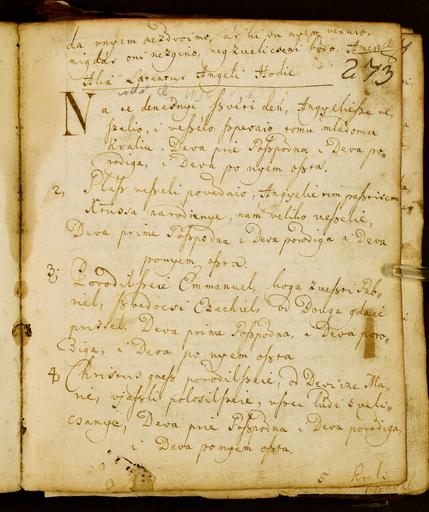 da vnyem nezdvoimo, ár ki vu nyem veruio,
nigdár oni nezgino, neg zvelicseni bodo. Amen
273
Alia Lætantur Angeli Hodie
Na ze denesnyi szveti dén, Angyeließe ve
szelio, i veszelo szpevaio tomu mladomu
kraliu. Deva prie Poszpodna i Deva po-
rodiga, i Deva po nyem oszta.
2, Glasz veszeli povedaio, Angyelie tim pasztirom
Krtussa narodienye, nam veliko veszelié,
Deva prime Poszpodna i Deva porodiga i Deva
ponyem oszta.
3. Porodilszeie Emmanuel, koga zveszti Gab-
riel, szvedocsi Ezechiel, od Bouga gdaie
prissel. Deva prime Poszpodna, i Deva poro-
Diga, i Deva po nyem oszta
4 Christus gnesz porodilszeie, od Devicze Ma-
rie, vjaszli polosilszeie, vszei lüdi zveli-
csanye, Deva prie Poszpodna i Deva porodiga,
i Deva ponyem oszta.
5 Krali